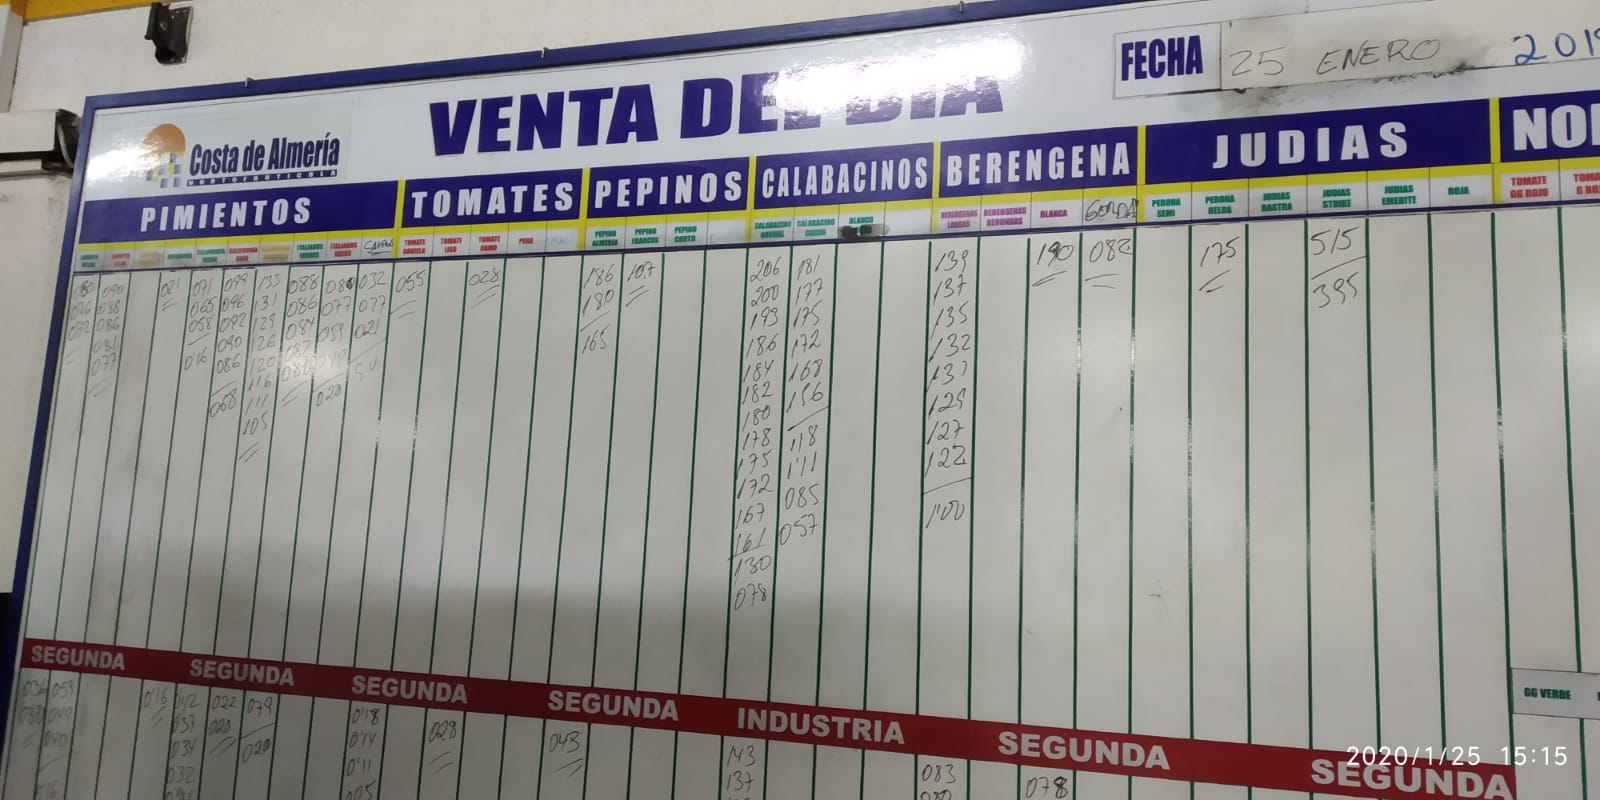 VENTA DEL DIA
FECHA 25 ENERO 2019
Costa de Almería
HORTOFRUTICOLA
PIMIENTOS TOMATES PEPINOS CALABACINOS BERENGENA JUDIAS
TOMATE DANIELA
TOMATE LISO
TOMATE RAMO
PERA
PEPINO ALMERIA
PEPINO FRANCES
PEPINO CORTO
CALABACINO NORMAL
CALABACINO GORDO
BLANCO
BERENGENAS LARGAS
BERENGENAS REDONDAS
BLANCA
GORDA
PERONA SEMI
PERONA HELDA
JUDIAS RASTRA
JUDIAS STRIKE
JUDIAS EMERITE
ROJA
TOMATE GG ROJO
080 076 092
090 088 086 081 077
021
071 065 058 016
099 096 092 090 086 068
133 131 129 126 120 116 111 105
088 086 084 082 080
077 059
020
032 077 021
055
028
186 180 165
107
206 200 193 186 184 182 180 178 175 172 167 161 130 078
181 177 175 172 168 156 118 1'11 085 057
139 137 135 132 131 129 127 122 1'00
190
082
175
515 395
SEGUNDA SEGUNDA SEGUNDA SEGUNDA INDUSTRIA SEGUNDA SEGUNDA
GG VERDE
059 049 040
0'16
042 037 034 032
022 020
079 020
0'18 0'14 0'11 005
028
043
143 137
083 080
078
2020/1/25 15:15